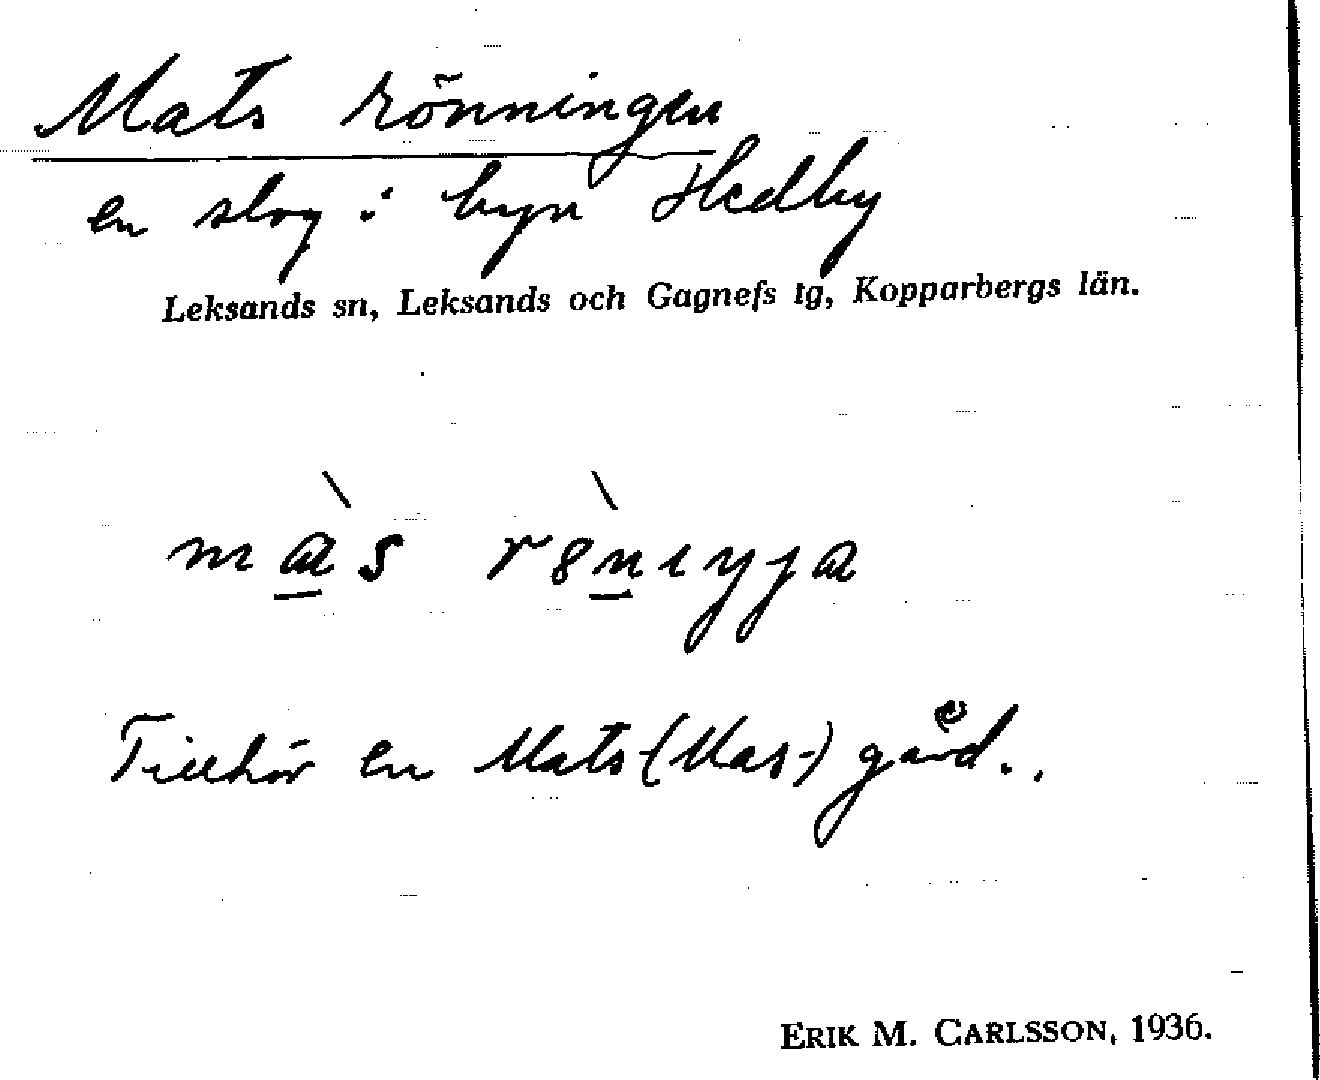 Mats rönningen
en slog i byn Hedby
Leksands sn, Leksands och Gagnefs tg, Kopparbergs län.
Tillhör en Mats-(Mas-) gård.
ERIK M. CARLSSON, 1936.